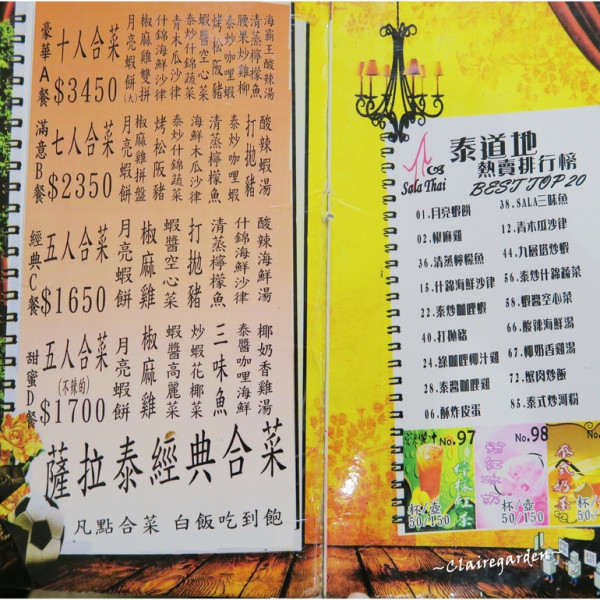 豪華A餐
十人合菜
$3450
月亮蝦餅(大)
椒麻雞雙拼
什錦海鮮沙律
青木瓜沙律
泰炒什錦蔬菜
蝦醬空心菜
烤松阪豬
泰炒咖哩蝦
腰果炒雞柳
清蒸檸檬魚
海霸王酸辣湯
滿意B餐
七人合菜
$2350
月亮蝦餅
椒麻雞拼盤
烤松阪豬
泰炒什錦蔬菜
海鮮木瓜沙律
清蒸檸檬魚
泰炒咖哩蝦
打拋豬
酸辣蝦湯
經典C餐
五人合菜
$1650
月亮蝦餅
椒麻雞
蝦醬空心菜
打拋豬
清蒸檸檬魚
什錦海鮮沙律
酸辣海鮮湯
甜蜜D餐
五人合菜
(不辣的)
$1700
月亮蝦餅
椒麻雞
蝦醬高麗菜
炒蝦花椰菜
三味魚
泰醬咖哩海鮮
椰奶香雞湯
薩拉泰經典合菜
凡點合菜 白飯吃到飽
Sala Thai
泰道地
熱賣排行榜
BEST TOP 20
01.月亮蝦餅
02.椒麻雞
36.清蒸檸檬魚
15.什錦海鮮沙律
22.泰炒咖哩蝦
40.打拋豬
24.綠咖哩椰汁雞
28.泰醬咖哩雞
06.酥炸皮蛋
38.SALA三味魚
12.青木瓜沙律
44.九層塔炒蝦
56.泰炒什錦蔬菜
58.蝦醬空心菜
66.酸辣海鮮湯
67.椰奶香雞湯
72.蟹肉炒飯
85.泰式炒河粉
No.97
檸檬紅茶
杯/壺
50/150
No.98
粉紅冰奶
杯/壺
50/150
No.
泰式奶茶
杯/壺
50/150
~Clairegarden~